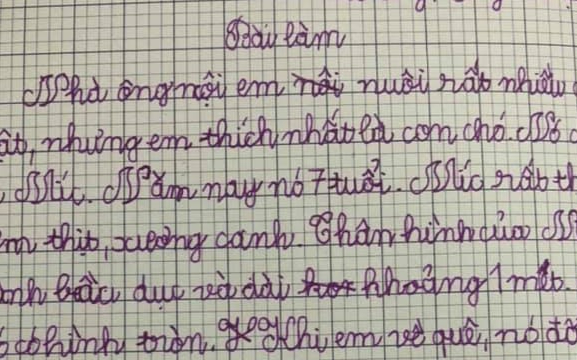 Bài làm
Nhà ông nội em nuôi rất nhiều
nhưng em thích nhất là con chó. Nó
Míc. Năm nay nó 7 tuổi. Míc rất
thịt, xương canh. Thân hình của
bầu dục và dài khoảng 1 mét.
có hình tròn. Khi em về quê, nó